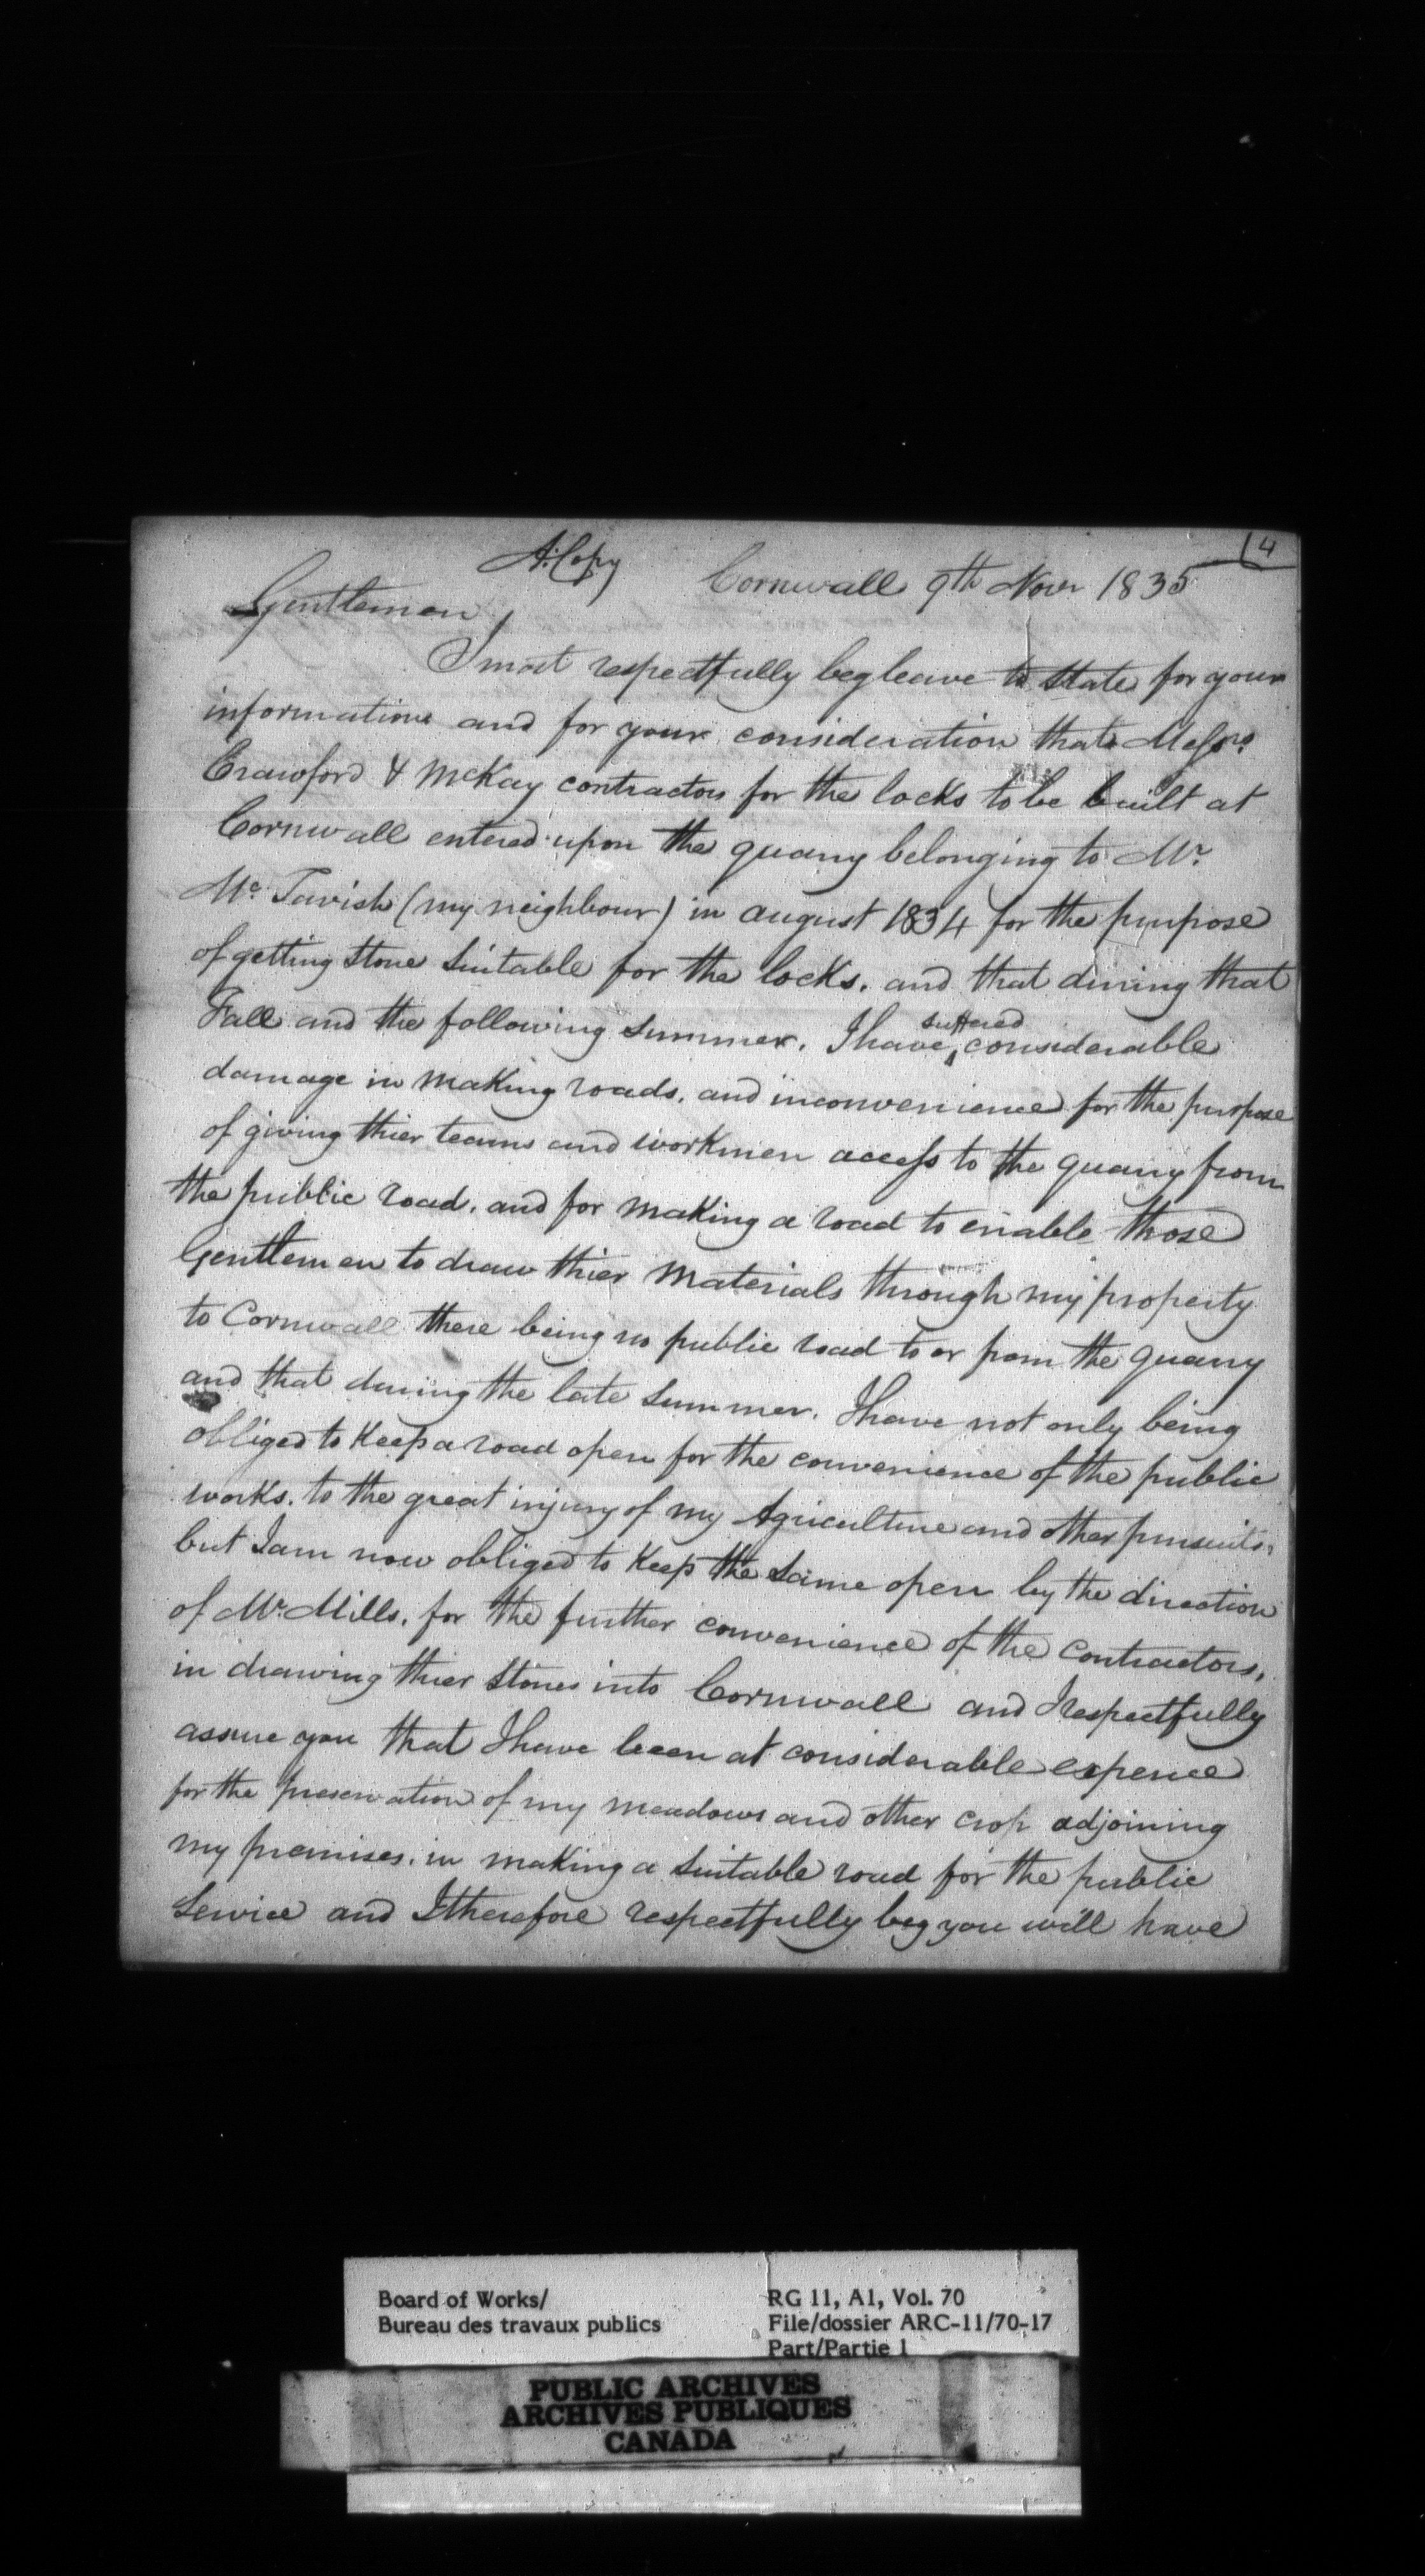 4
A. Copy
Cornwall 9th Novr 1835
Gentlemen,
I most respectfully beg leave to state for your
information and for your consideration that Messrs.
Crawford & McKay contractors for the locks to be built at
Cornwall entered upon the quarry belonging to Mr.
Mc. Tavish (my neighbour) in august 1834 for the purpose
of getting stone suitable for the locks. and that during that
Fall and the following summer. I have suffered considerable
damage in making roads. and inconvenience for the purpose
of giving thier teams and workmen access to the quarry from
the public road. and for making a road to enable those
Gentlemen to draw thier materials through my property
to Cornwall there being no public road to or from the quarry
and that during the late summer. I have not only being
obliged to keep a road open for the convenience of the public
works. to the great injury of my Agriculture and other pursuits,
but I am now obliged to keep the same open by the direction
of Mr. Mills. for the further convenience of the contractors,
in drawing thier stones into Cornwall and I respectfully
assure you that I have been at considerable expence
for the preservation of my meadows and other crop adjoining
my premises. in making a suitable road for the public
Service and I therefore respectfully beg you will have
Board of Works/
Bureau des travaux publics
RG 11, A1, Vol. 70
File/dossier ARC-11/70-17
Part/Partie 1
PUBLIC ARCHIVES
ARCHIVES PUBLIQUES
CANADA